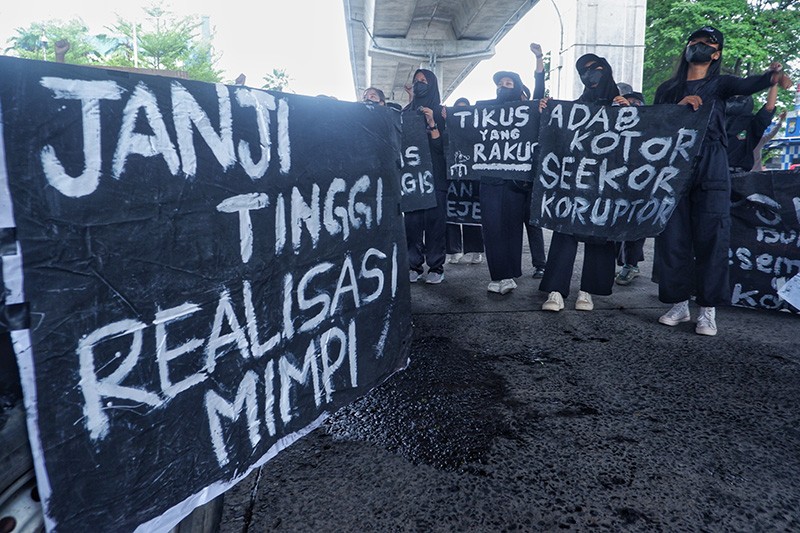 JANJI
TINGGI
REALISASI
MIMPI
TIKUS
YANG
RAKUS
ADAB
KOTOR
SEEKOR
KORUPTOR